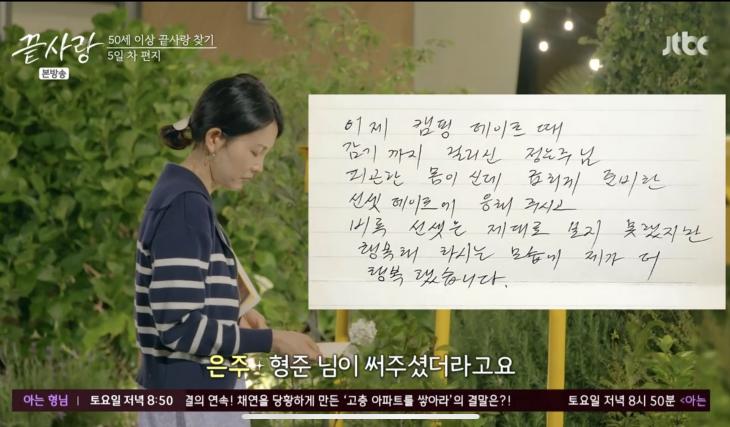 끝사랑
본방송
50세 이상 끝사랑 찾기
5일 차 편지
jtbc
어제 캠핑 데이트 때
감기 까지 걸리신 정은주 님
피곤한 몸이 신데 흔쾌히 준비한
선셋 데이트에 응해 주시고
비록 선셋은 제대로 보지 못했지만
행복해 하시는 모습에 제가 더
행복 했습니다.
은주 형준 님이 써주셨더라고요
아는 형님 토요일 저녁 8:50 결의 연속! 채연을 당황하게 만든 ‘고층 아파트를 쌓아라’의 결말은?! 토요일 저녁 8시 50분 <아는